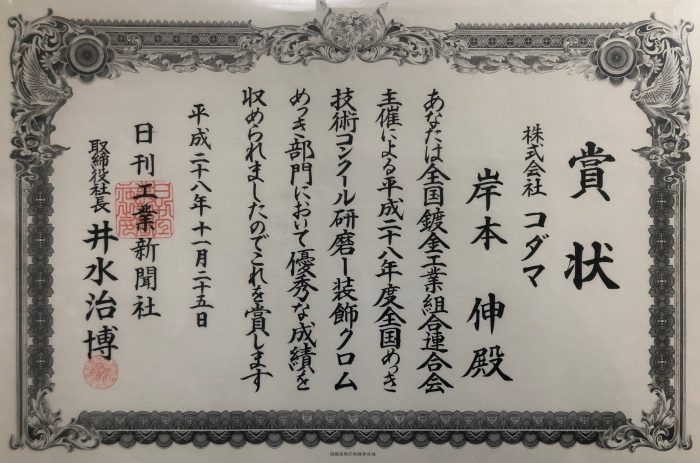 賞状
株式会社 コダマ
岸本 伸殿
あなたは全国鍍金工業組合連合会
主催による平成二十八年度全国めっき
技術コンクール研磨ー装飾クロム
めっき部門において優秀な成績を
収められましたのでこれを賞します
平成二十八年十一月二十五日
日刊工業新聞社
取締役社長 井水治博